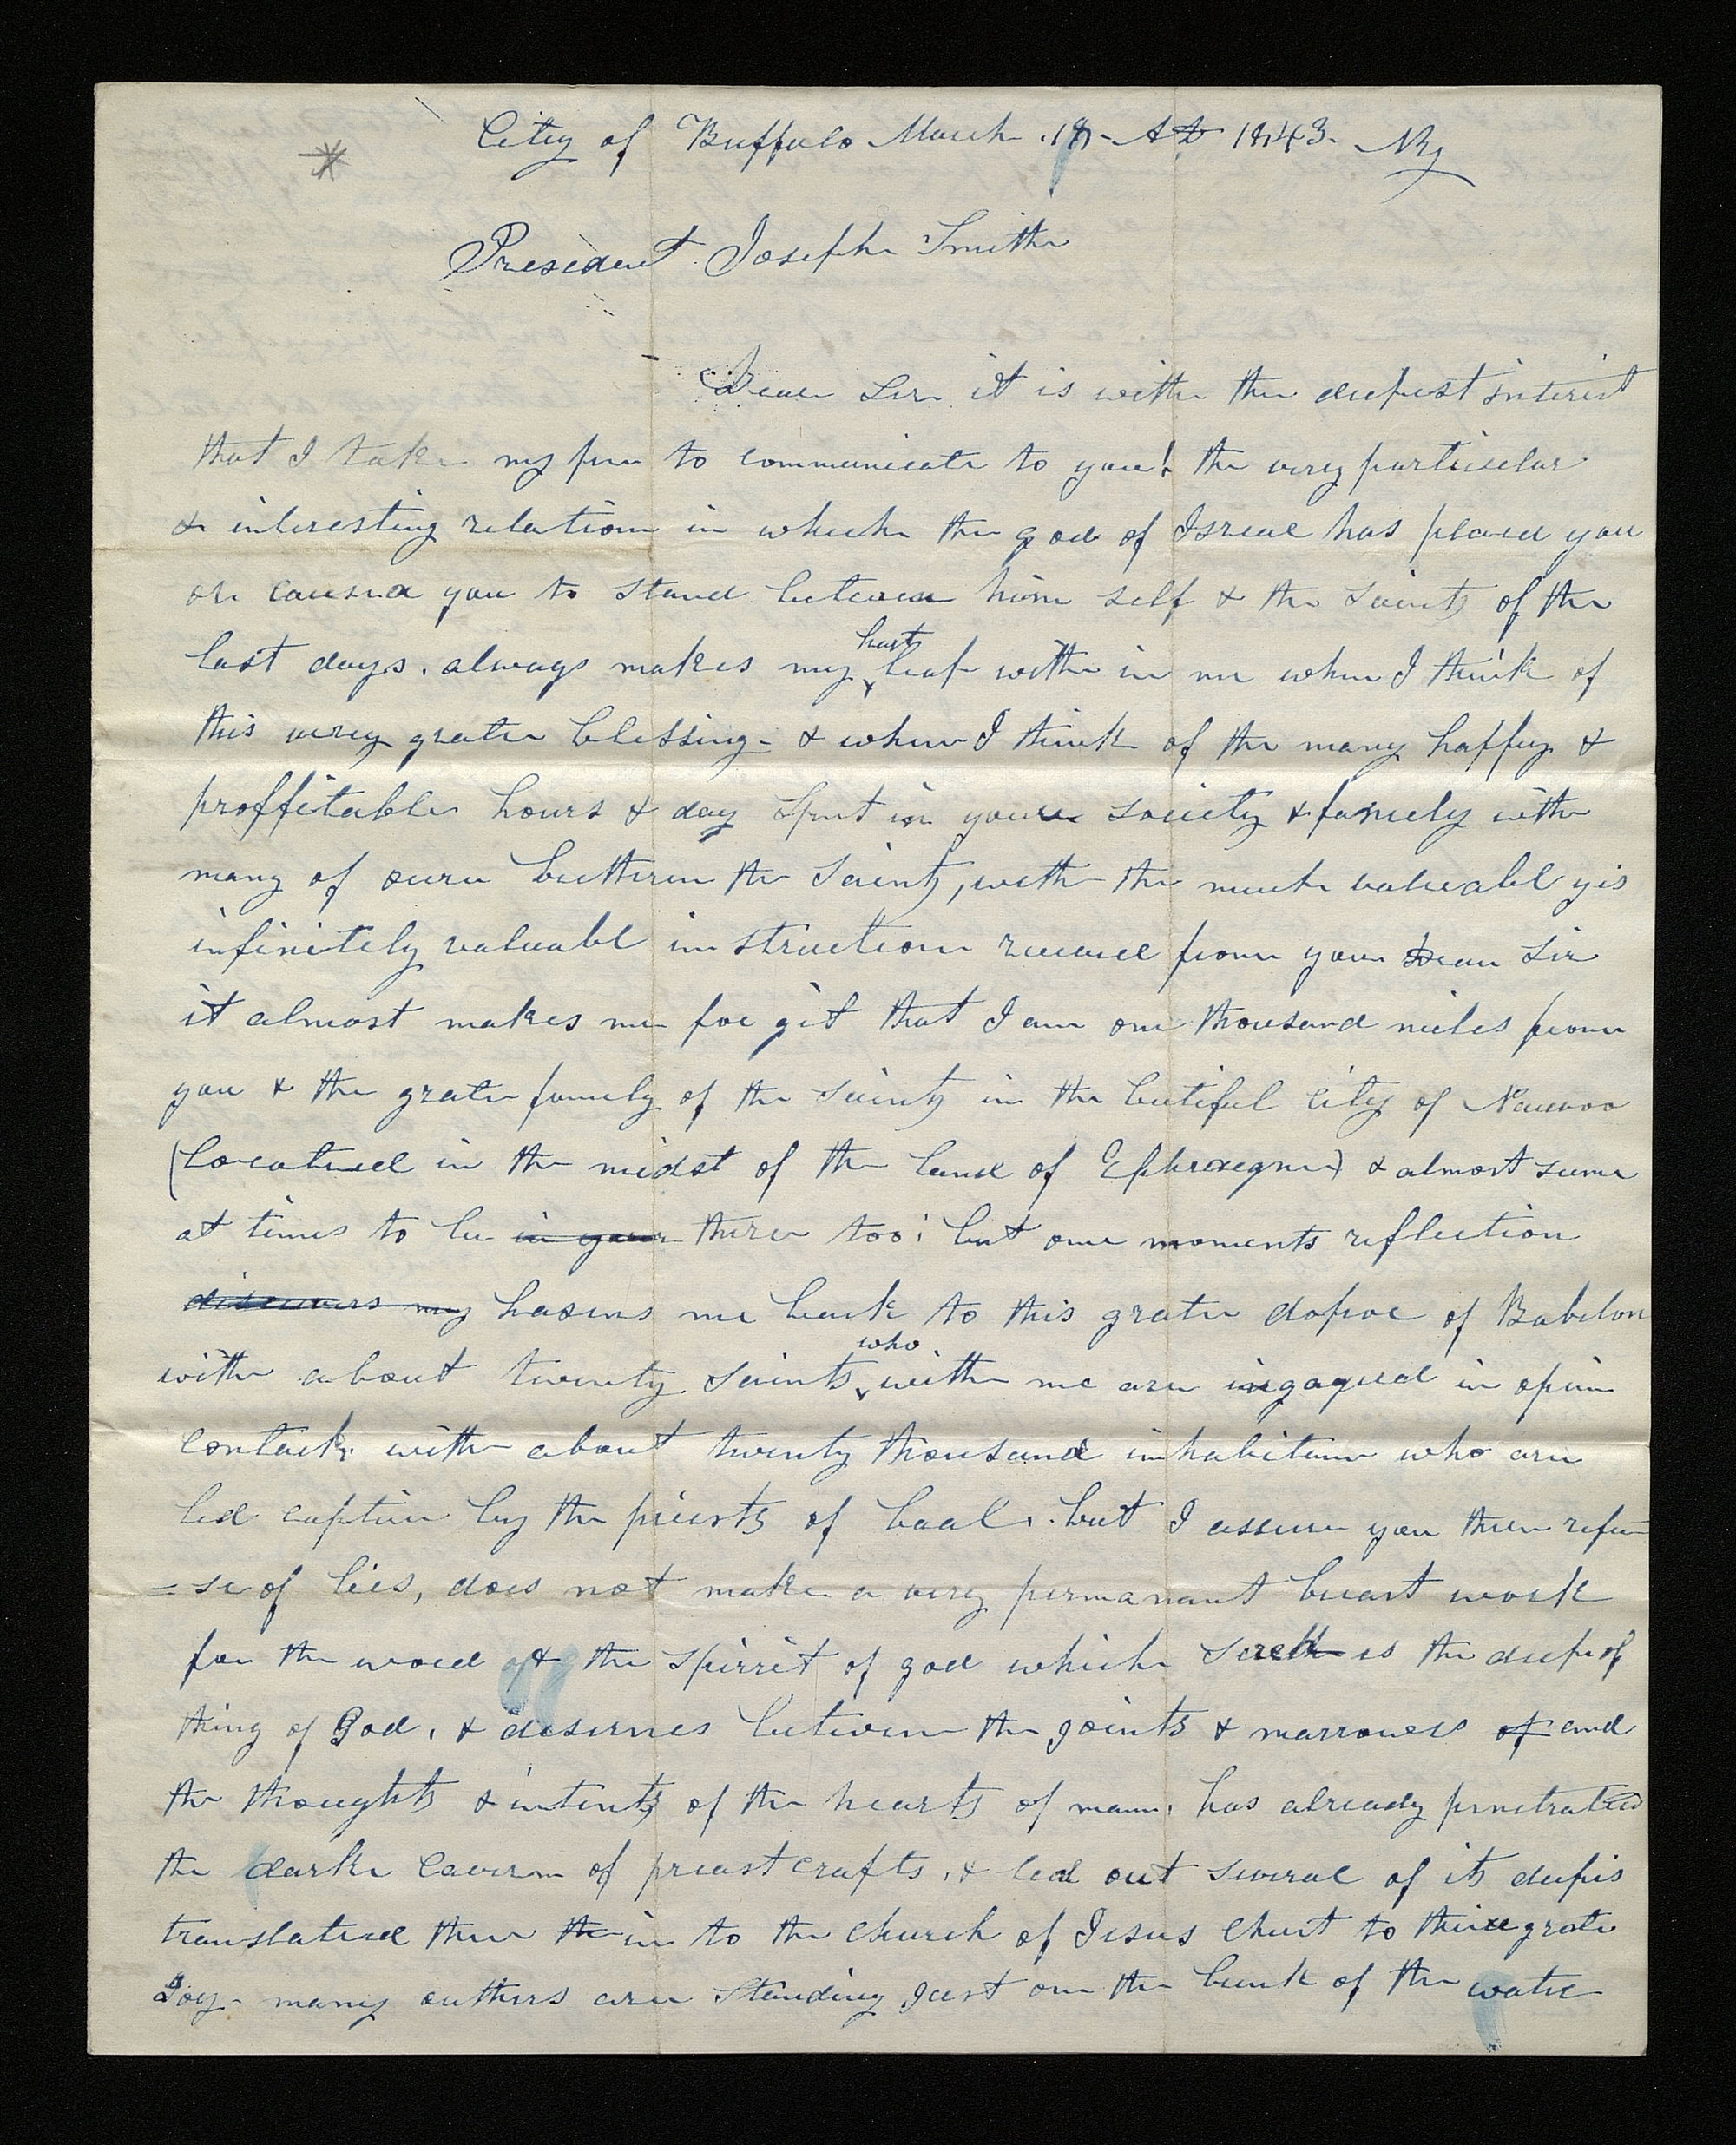 City of Buffalo March 18- AD 1843. NY
President Joseph Smith
Dear Sir it is with the deepest interist
that I take my pen to communicate to you! the very particular
& interesting relation in which the god of Isreal has placed you
or caused you to stand between him self & the Saints of the
last days. always makes my hart leap with in me when I think of
this verry grate blessing- & when I think of the many happy &
proffitable hours & day spent in your society & famely with
many of oure bretheren the Saints, with the much valuabl yis
infinitely valuabl instruction received from you Dear Sir
it almost makes me for git that I am one thousand miles from
you & the grate famely of the Saints in the butiful City of Nauvoo
(Locatued in the midst of the land of Ephraegm) & almost seme
at times to be in your there too; but one moments reflection
discovers my hasens me back to this grate depoe of Babilon
with about twenty Saints who with me are ingagued in opin
contack, with about twenty thousand inhabitanc who are
led captive by the priests of baal. but I assure you there refu
=se of lies, does not make a very permanant breast work
for the word of & the spirrit of god which is the deepe of
thing of God, & desernes between the joints & marrowes of and
the thoughts & intents of the hearts of mann, has already penetrated
the darke cavern of preastcrafts, & led out several of its deepis
translated them th in to the church of Jesus Christ to there grate
Joy- many outhers are standing Just on the bank of the water